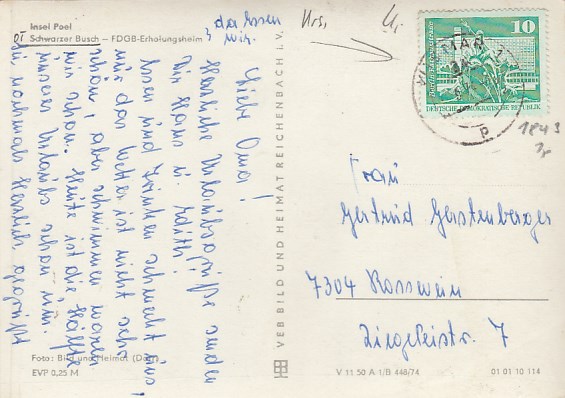 Insel Poel
Schwarzer Busch – FDGB-Erholungsheim
Liebe Oma!
Herzliche Urlaubsgrüße senden
Dir Hans u. Edith!
Essen und Trinken schmeckt uns!
nur das Wetter ist nicht sehr
schön, aber schwimmen waren
wir schon. Heute ist die Hälfte
unseres Urlaubs schon um.
Sei nochmals herzlich gegrüßt
das Essen
VEB BILD UND HEIMAT REICHENBACH I. V.
10
DEUTSCHE DEMOKRATISCHE REPUBLIK
WISMAR
p
1843
Frau
Gertrud Gerstenberger
7304 Rosswein
Ziegeleistr. 7
Foto: Bild und Heimat
EVP 0,25 M
V 11 50 A 1/B 448/74
01 01 10 114